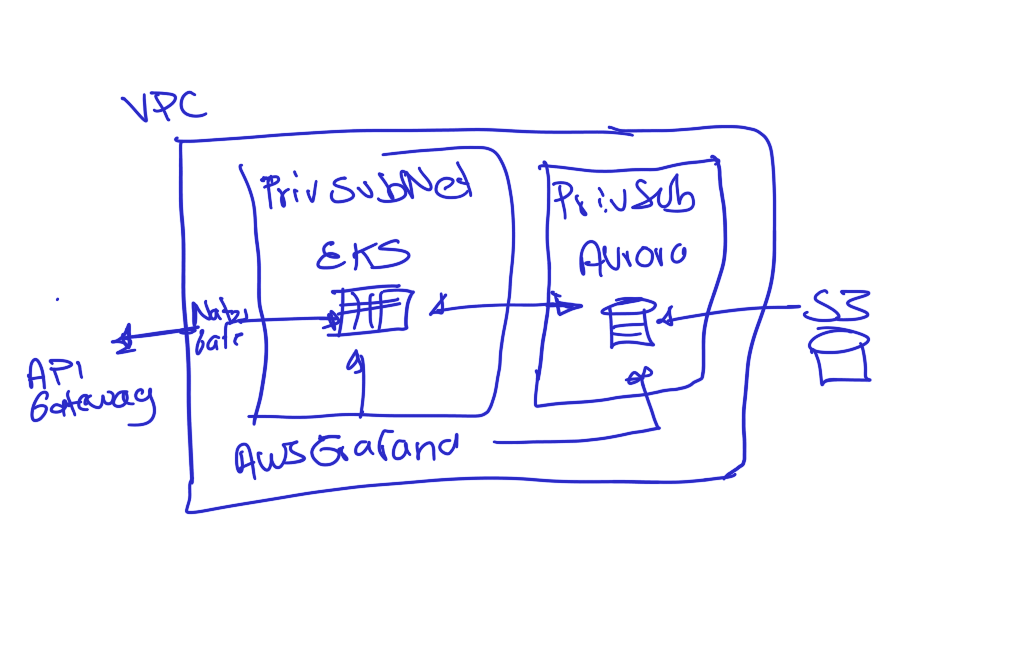 VPC
PrivSubNet
EKS
PrivSub
Aurora
Nat
Gate
S3
API
Gateway
AWS Grafana